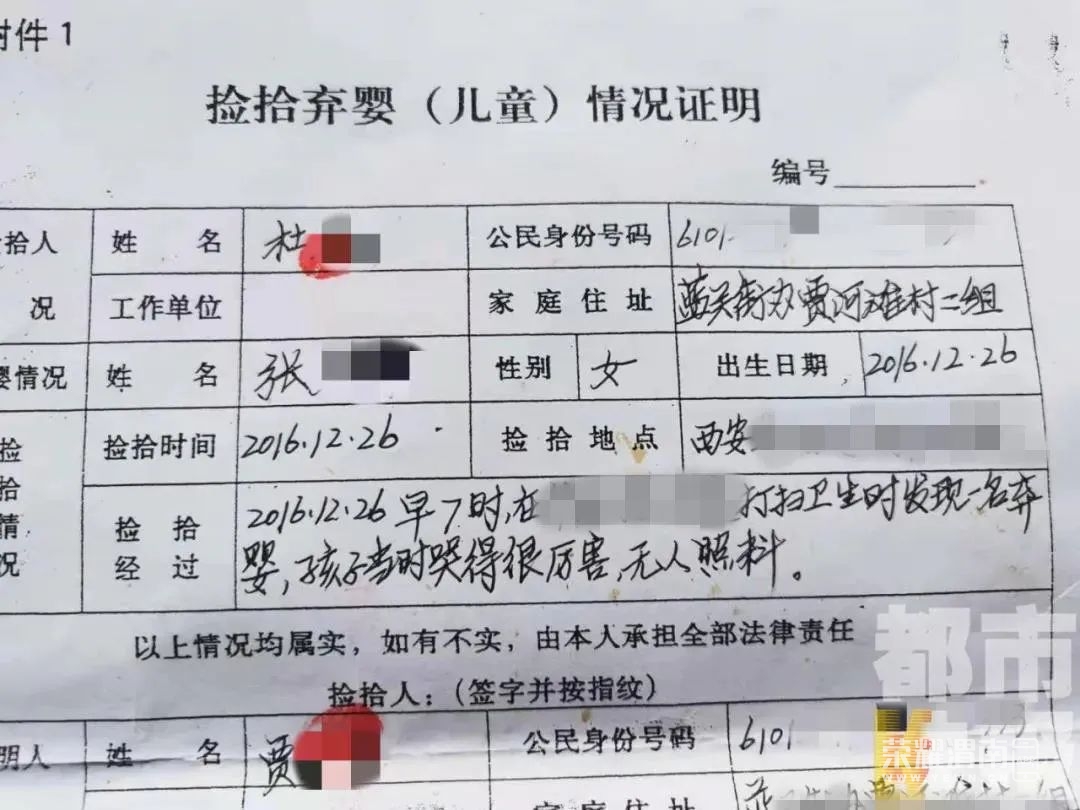 附件1
捡拾弃婴（儿童）情况证明
编号
拾人 姓 名 杜 公民身份号码 6101
况 工作单位 家庭住址 蓝关街办贾河滩村二组
婴情况 姓 名 张 性别 女 出生日期 2016.12.26
捡拾情况 捡拾时间 2016.12.26 捡拾地点 西安
捡拾经过 2016.12.26早7时,在 打扫卫生时发现一名弃
婴,孩子当时哭得很厉害,无人照料。
以上情况均属实，如有不实，由本人承担全部法律责任
捡拾人：(签字并按指纹)
明人 姓 名 贾 公民身份号码 6101
家庭住址
都市
荣耀渭南